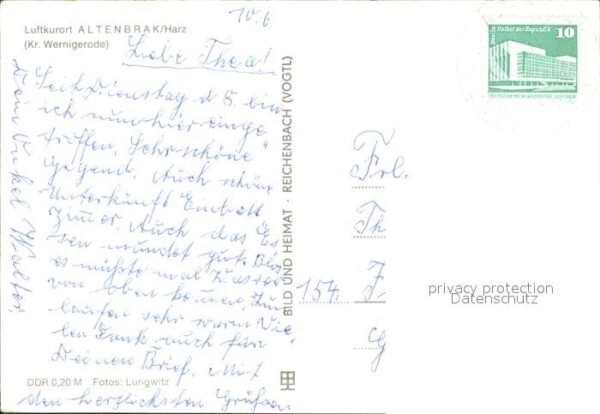 10.6
Luftkurort ALTENBRAK/Harz
(Kr. Wernigerode)
Liebe Thea!
Seit Dienstag d 8. bin
ich nun hier einge
troffen. Sehr schöne
Gegend. Auch schöne
Unterkunft Einbett
Zimmer. Auch das Es
sen mundet gut. Blos
es müsste mal Wasser
von oben kommen. Zum
laufen sehr warm Vie
len Dank auch für
Deinen Brief. Mit
den herzlichsten Grüßen
Dein Onkel Walter.
DDR 0,20 M Fotos: Lungwitz
BILD UND HEIMAT · REICHENBACH (VOGTL)
Berlin Palast der Republik
10
DEUTSCHE DEMOKRATISCHE REPUBLIK
Frl.
Th
154. F
G
privacy protection
Datenschutz